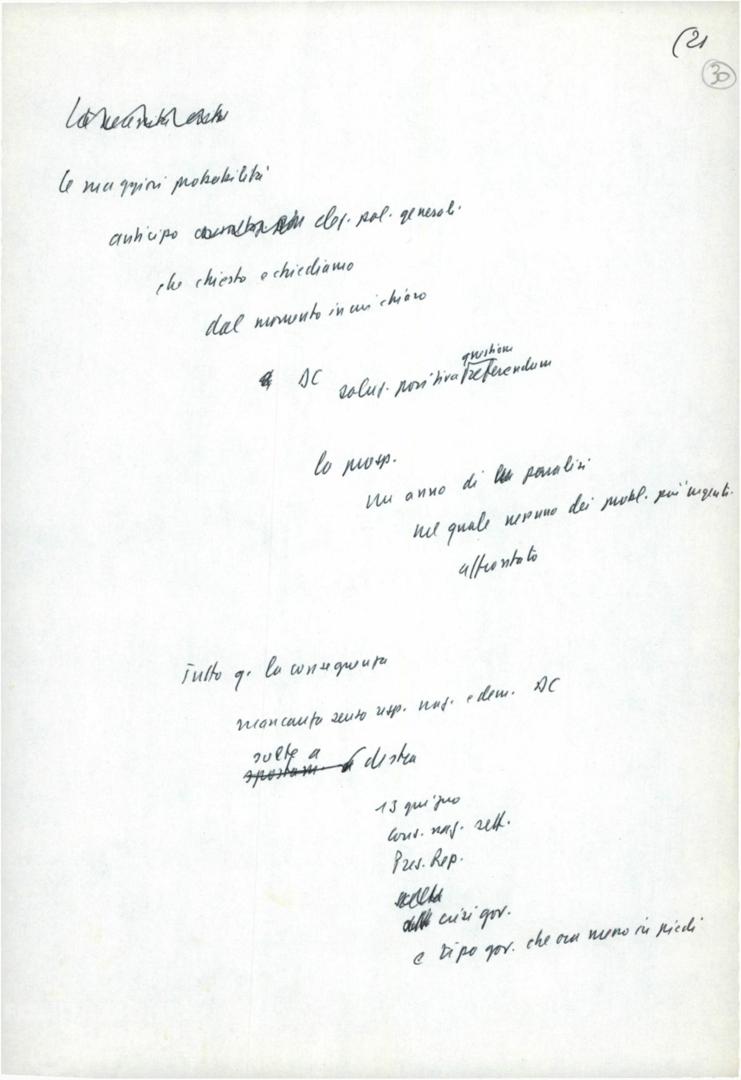 (21
30
le maggiori probabilità
anticipo elez. pol. generali.
che chiesto e chiediamo
dal momento in cui chiaro
DC soluz. positiva questione referendum
la prosp.
un anno di paralisi
nel quale nessuno dei probl. più urgenti.
affrontato
Tutto q. la conseguenza
mancanza senso resp. naz. e dem. DC
svolta a
spostam. destra
13 giugno
cons. naz. sett.
Pres. Rep.
scelta
crisi gov.
e tipo gov. che ora meno in piedi